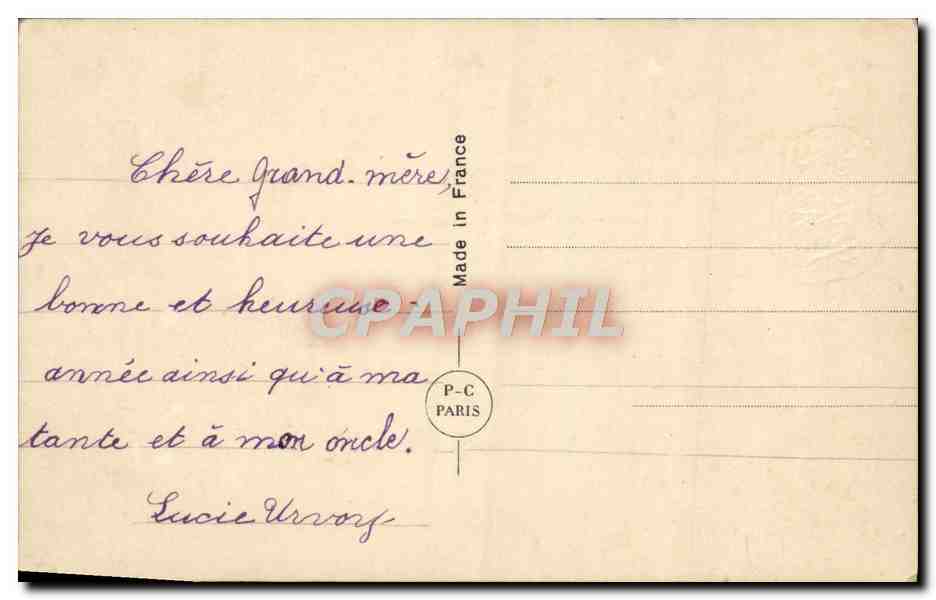 Chère Grand-mère,
Je vous souhaite une
bonne et heureuse -
année ainsi qu'à ma
tante et à mon oncle.
Lucie Urvoy
Made in France
P-C
PARIS
CPAPHIL